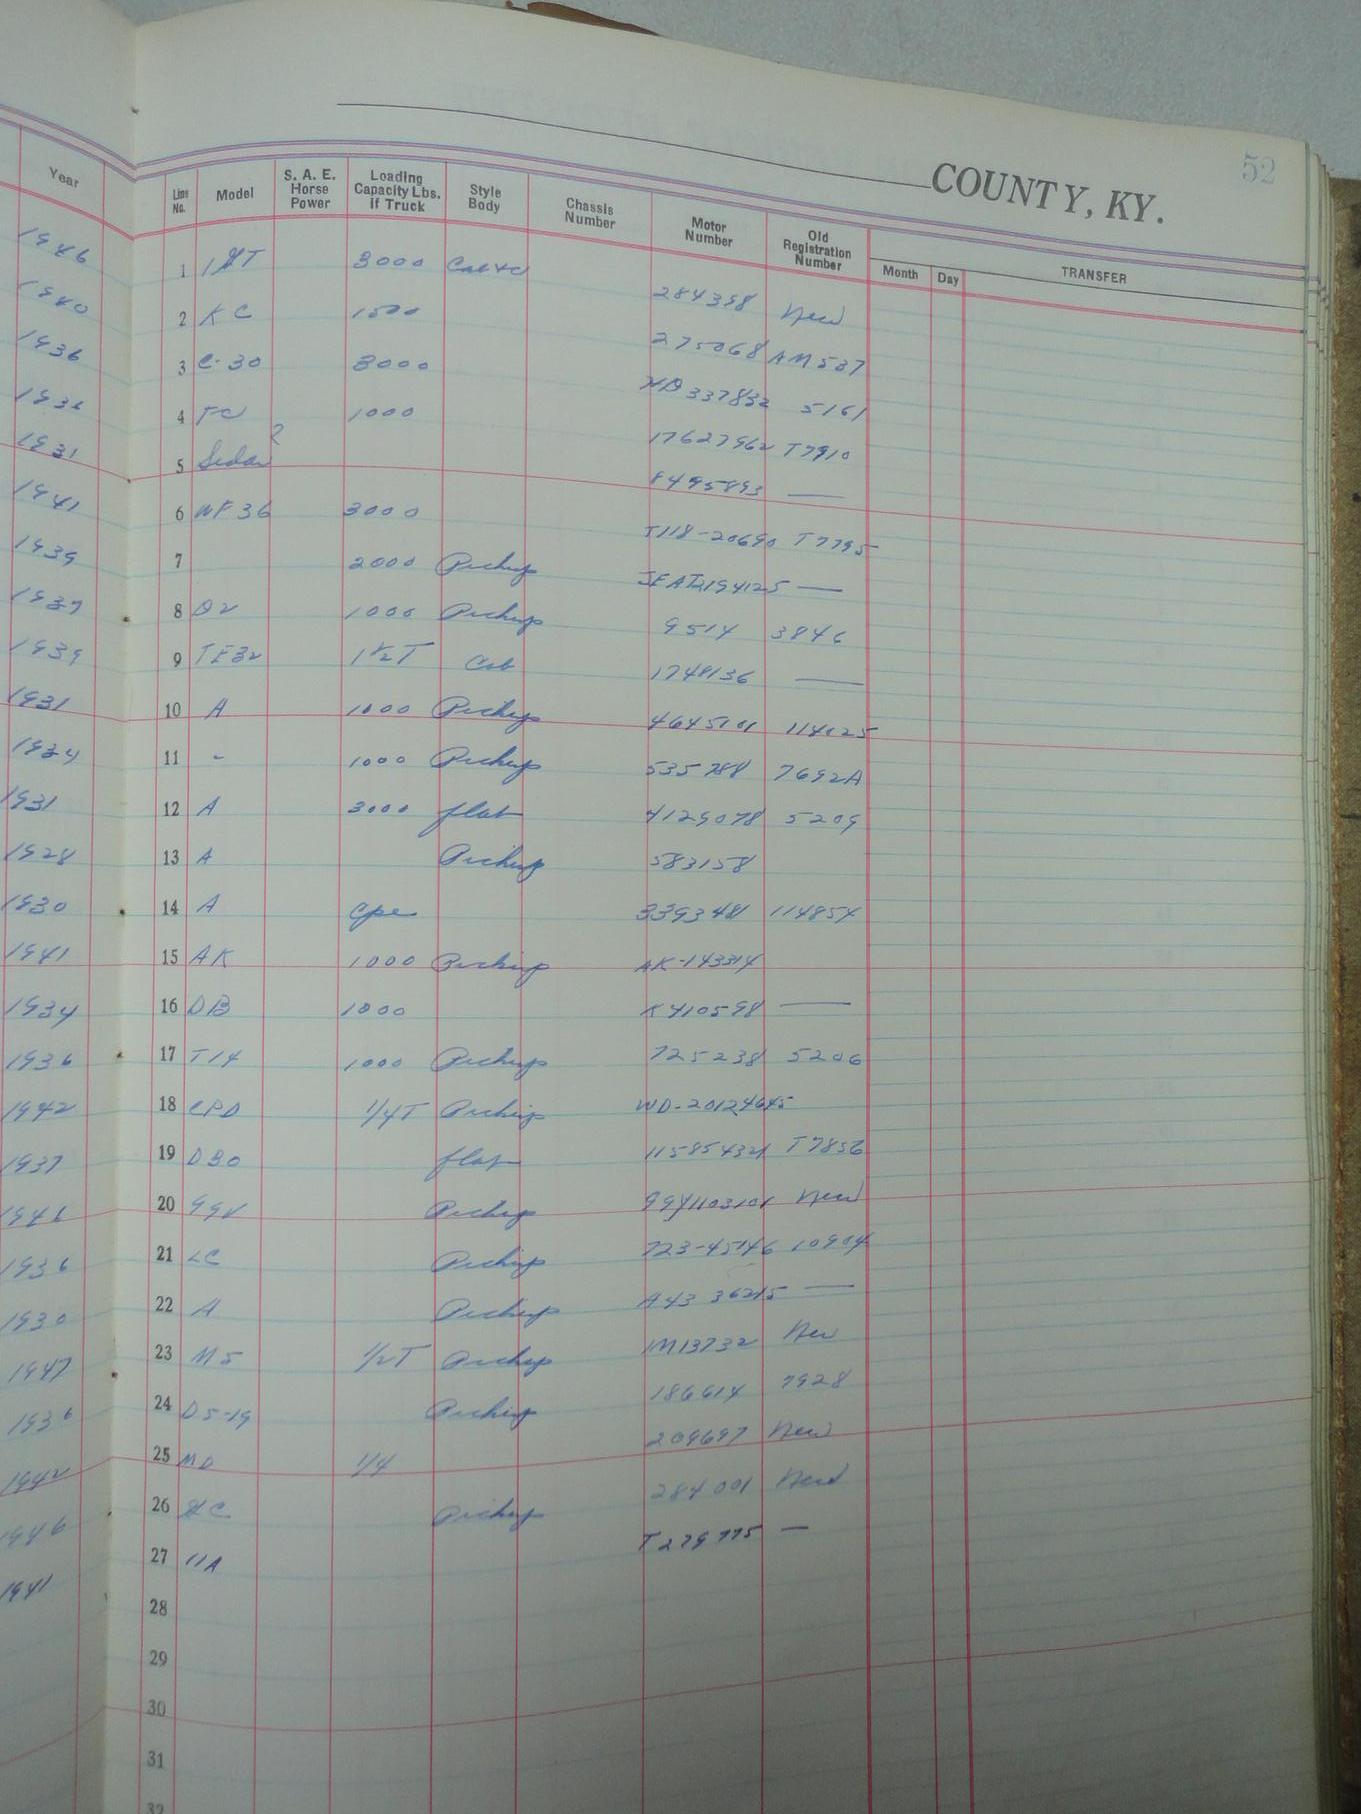 52
COUNTY, KY.
Year Line No. Model S. A. E. Horse Power Loading Capacity Lbs. If Truck Style Body Chassis Number Motor Number Old Registration Number Month Day TRANSFER
1946 1 3000 284398 New
1940 2 KC 1500 275068 AM537
1936 3 C-30 3000 5161
1936 4 TC 1000 17627962 T7910
1931 5 Sedan ? 8495893 —
1941 6 WF36 3000 T118-20690 T7795
1939 7 2000 Pickup —
1937 8 D2 1000 Pickup 9514 3846
1939 9 TE32 1½T Cab 1748136 —
1931 10 A 1000 Pickup 4645101 114125
1934 11 - 1000 Pickup 535788 7692A
1931 12 A 3000 flat 4129078 5209
1928 13 A Pickup 583158
1930 14 A Cpe 3393481 114854
1941 15 AK 1000 Pickup AK-143314
1934 16 DB 1000 K410598 —
1936 17 T14 1000 Pickup 725238 5206
1942 18 CPD 1/4T Pickup WD-20124645
1937 19 D30 flat T7856
1946 20 99V Pickup New
1936 21 LC Pickup 723-45146 10904
1930 22 A Pickup A43 36215 —
1947 23 M5 1/2T Pickup 1M13732 New
1936 24 D5-19 Pickup 186614 7928
1942 25 MD 1/4 209697 New
1946 26 Pickup 284001 New
1941 27 11A T279775 —
28
29
30
31
32